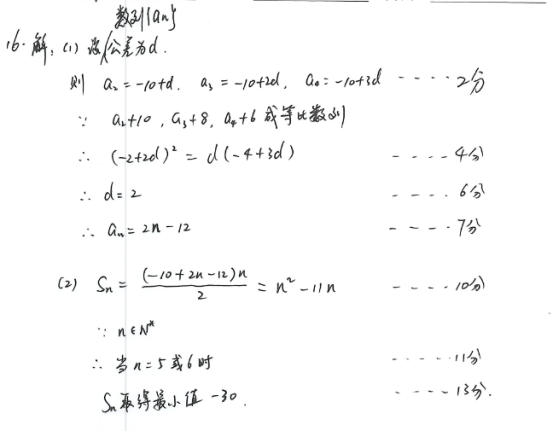 数列{an}
16. 解: (1) 设公差为d.
则 a₂=-10+d, a₃=-10+2d, a₄=-10+3d ----- 2分
∵ a₂+10, a₃+8, a₄+6 成等比数列
∴ (-2+2d)² = d(-4+3d) ---- 4分
∴ d=2 ---- 6分
∴ an=2n-12 ---- 7分
(2) Sn = (-10+2n-12)n / 2 = n²-11n ---- 10分
∵ n∈N*
∴ 当n=5或6时 ----- 11分
Sn取得最小值 -30. ---- 13分.